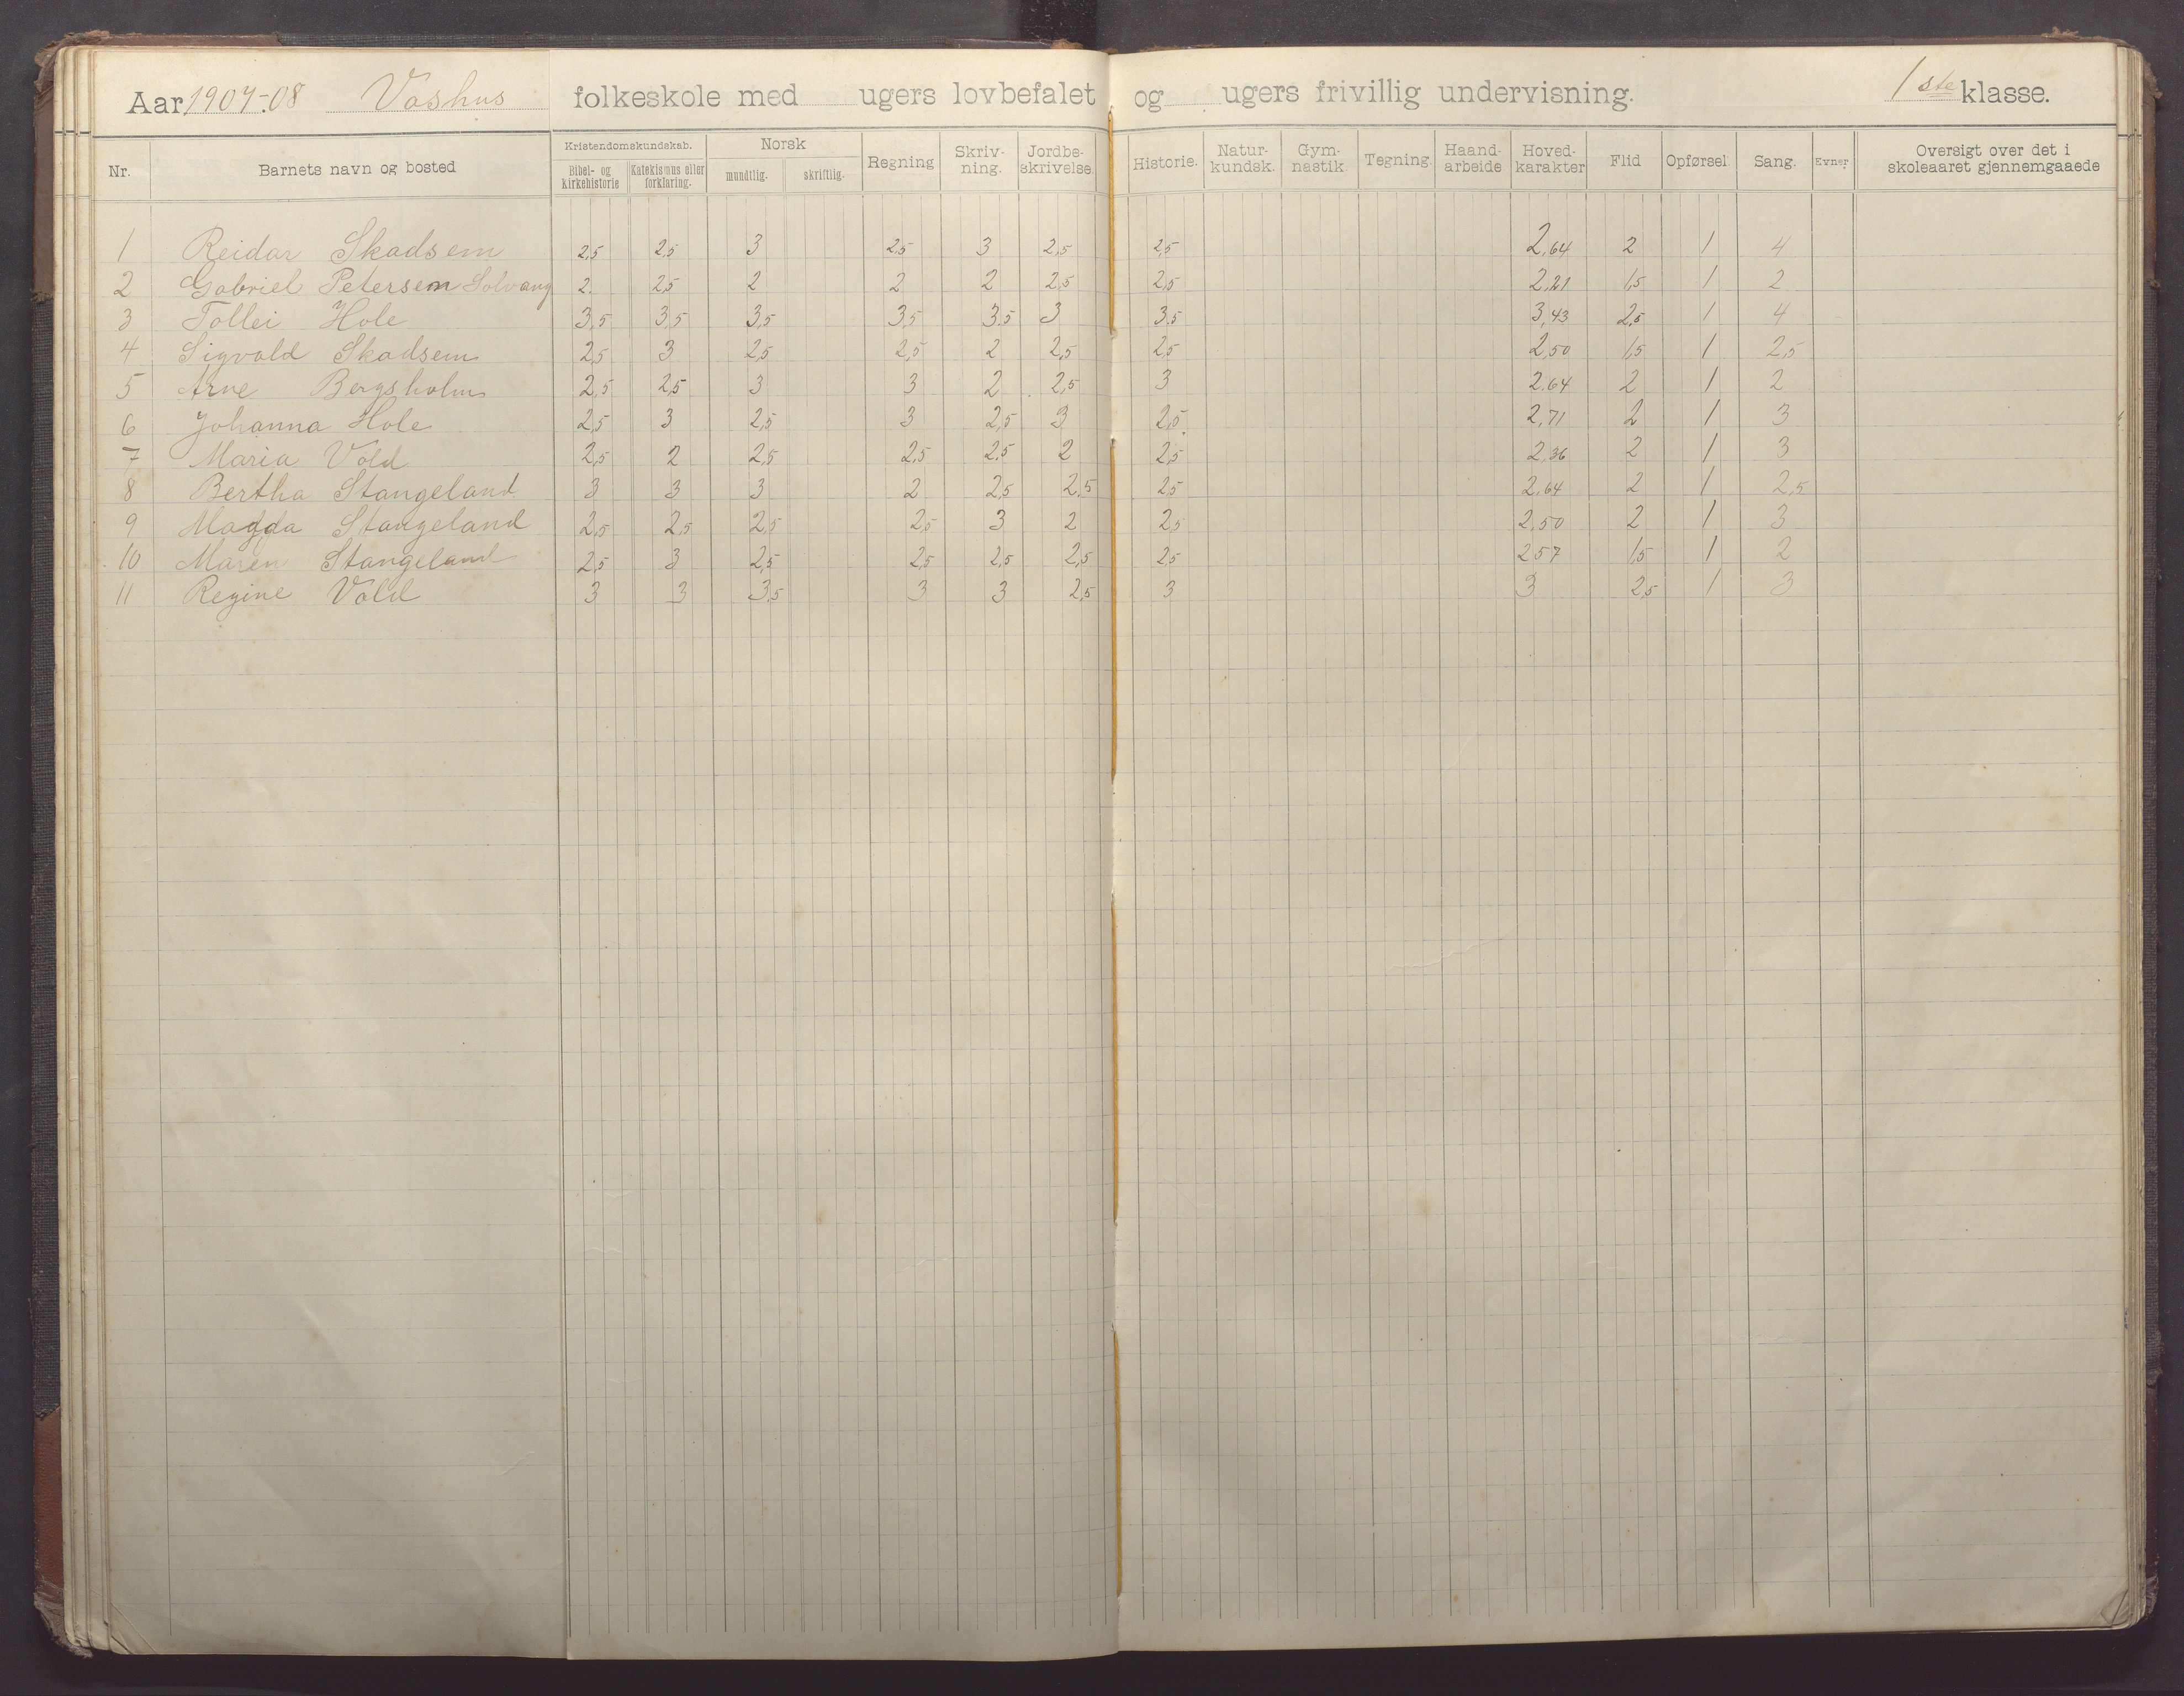 Aar 1907-08 Voshus folkeskole med ugers lovbefalet og ugers frivillig undervisning. 1ste klasse.
Nr. Barnets navn og bosted Kristendomskundskab. Bibel- og kirkehistorie Katekismus eller forklaring. Norsk mundtlig. skriftlig. Regning Skriv-ning. Jordbe-skrivelse. Historie. Natur-kundsk. Gym-nastik. Tegning. Haand-arbeide Hoved-karakter Flid Opførsel Sang. Evner Oversigt over det i skoleaaret gjennemgaaede
1 Reidar Skadsem 2,5 2,5 3 2,5 3 2,5 2,5 2,64 2 1 4
2 Gabriel Petersen Solvang 2. 2,5 2 2 2 2,5 2,5 2,21 1,5 1 2
3 Tollei Hole 3,5 3,5 3,5 3,5 3,5 3 3,5 3,43 2,5 1 4
4 Sigvald Skadsem 2,5 3 2,5 2,5 2 2,5 2,5 2,50 1,5 1 2,5
5 Arne Bergsholm 2,5 2,5 3 3 2 2,5 3 2,64 2 1 2
6 Johanna Hole 2,5 3 2,5 3 2,5 3 2,5 2,71 2 1 3
7 Maria Vold 2,5 2 2,5 2,5 2,5 2 2,5 2,36 2 1 3
8 Bertha Stangeland 3 3 3 2 2,5 2,5 2,5 2,64 2 1 2,5
9 Magda Stangeland 2,5 2,5 2,5 2,5 3 2 2,5 2,50 2 1 3
10 Maren Stangeland 2,5 3 2,5 2,5 2,5 2,5 2,5 2,57 1,5 1 2
11 Regine Vold 3 3 3,5 3 3 2,5 3 3 2,5 1 3